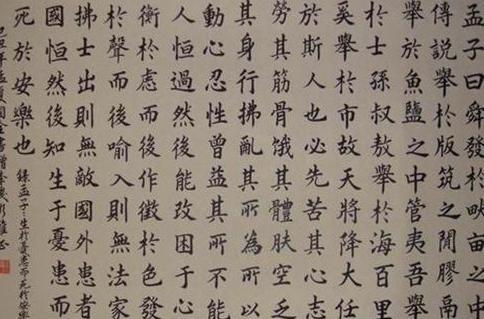 孟子曰舜發於畎畝之中
傳說舉於版築之間膠鬲
舉於魚鹽之中管夷吾舉
於士孫叔敖舉於海百里
奚舉於市故天將降大任
於斯人也必先苦其心志
勞其筋骨餓其體膚空乏
其身行拂亂其所為所以
動心忍性曾益其所不能
人恒過然後能改困于心
衡於慮而後作徵於色發
於聲而後喻入則無法家
拂士出則無敵國外患者
國恒然後知生于憂患而
死於安樂也
錄孟子生於憂患而死於安樂
己丑年孟夏